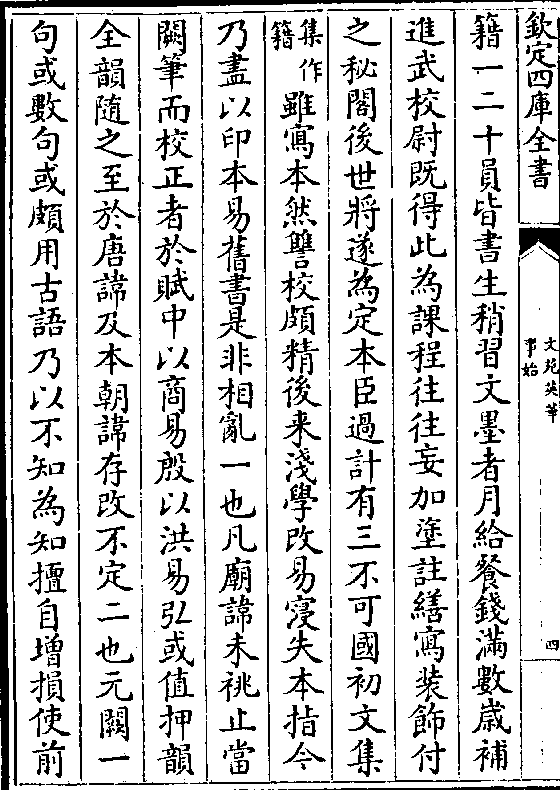 欽定四庫全書
文苑英華
事始
四
籍一二十員皆書生稍習文墨者月給餐錢滿數歲補
進武校尉既得此為課程往往妄加塗註繕寫装飾付
之秘閣後世將遂為定本臣過計有三不可國初文集
集作
籍
雖寫本然讐校頗精後来淺學改易寖失本指今
乃盡以印本易舊書是非相亂一也凡廟諱未祧止當
闕筆而校正者於賦中以商易殷以洪易弘或值押韻
全韻隨之至於唐諱及本朝諱存改不定二也元闕一
句或數句或頗用古語乃以不知為知擅自增損使前